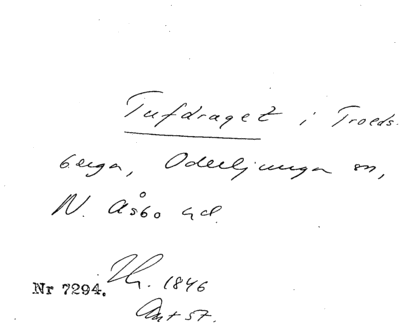 Tufdraget i Troeds-
berga, Oderljunga sn,
N. Åsbo hd.
Nr 7294. Th. 1846
Ant st.